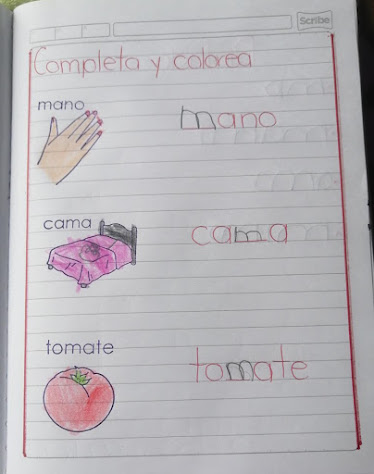 Scribe
Completa y colorea
mano
mano
cama
cama
tomate
tomate